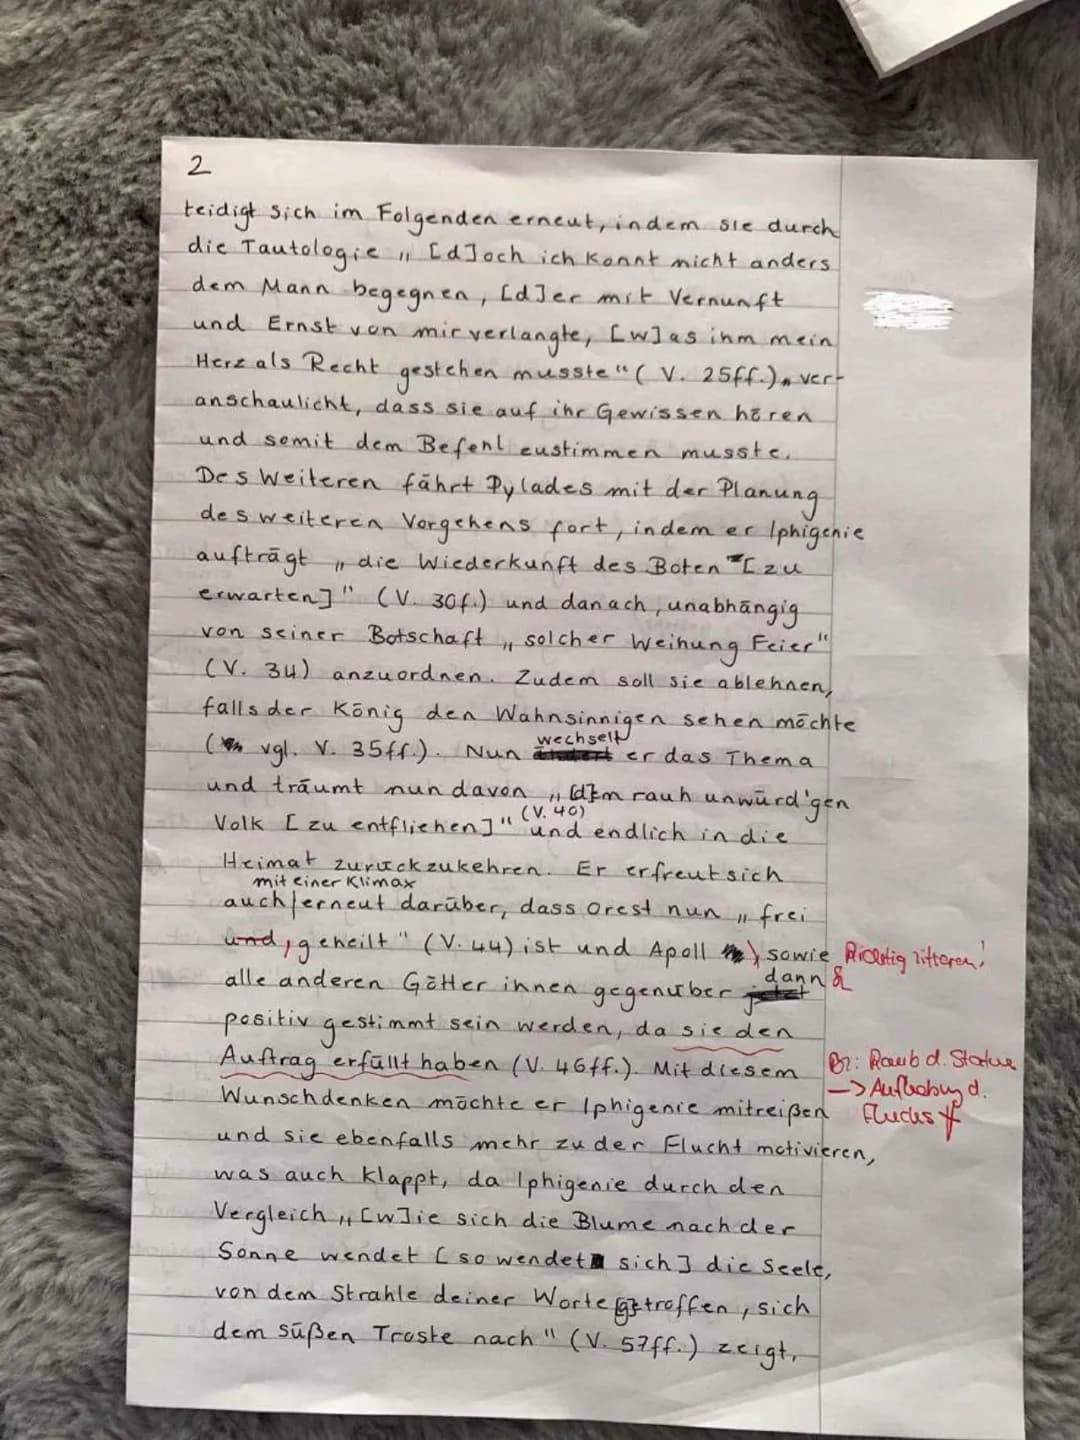 2
teidigt sich im Folgenden erneut, indem sie durch
die Tautologie „[d]och ich konnt nicht anders
dem Mann begegnen, [d]er mit Vernunft
und Ernst von mir verlangte, [w]as ihm mein
Herz als Recht gestehen musste" (V. 25ff.) ver-
anschaulicht, dass sie auf ihr Gewissen hören
und somit dem Befehl zustimmen musste.
Des Weiteren fährt Pylades mit der Planung
des weiteren Vorgehens fort, indem er Iphigenie
aufträgt „die Wiederkunft des Boten [zu
erwarten]" (V. 30f.) und danach, unabhängig
von seiner Botschaft „solcher Weihung Feier"
(V. 34) anzuordnen. Zudem soll sie ablehnen,
falls der König den Wahnsinnigen sehen möchte
wechselt
(vgl. V. 35ff.). Nun er das Thema
und träumt nun davon „[d]em rauh unwürd'gen
(V. 40)
Volk [zu entfliehen]" und endlich in die
Heimat zurückzukehren. Er erfreut sich
mit einer Klimax
auch erneut darüber, dass Orest nun „frei
und, geheilt" (V. 44) ist und Apoll sowie Richtig zitieren!
dann
alle anderen Götter ihnen gegenüber jetzt
positiv gestimmt sein werden, da sie den
Auftrag erfüllt haben (V. 46ff.). Mit diesem Bz: Raub d. Statue
Wunschdenken möchte er Iphigenie mitreißen -> Aufhebung d.
Fluchs
und sie ebenfalls mehr zu der Flucht motivieren,
was auch klappt, da Iphigenie durch den
Vergleich „[w]ie sich die Blume nach der
Sonne wendet [so wendet sich] die Seele,
von dem Strahle deiner Worte getroffen, sich
dem süßen Troste nach" (V. 57ff.) zeigt,